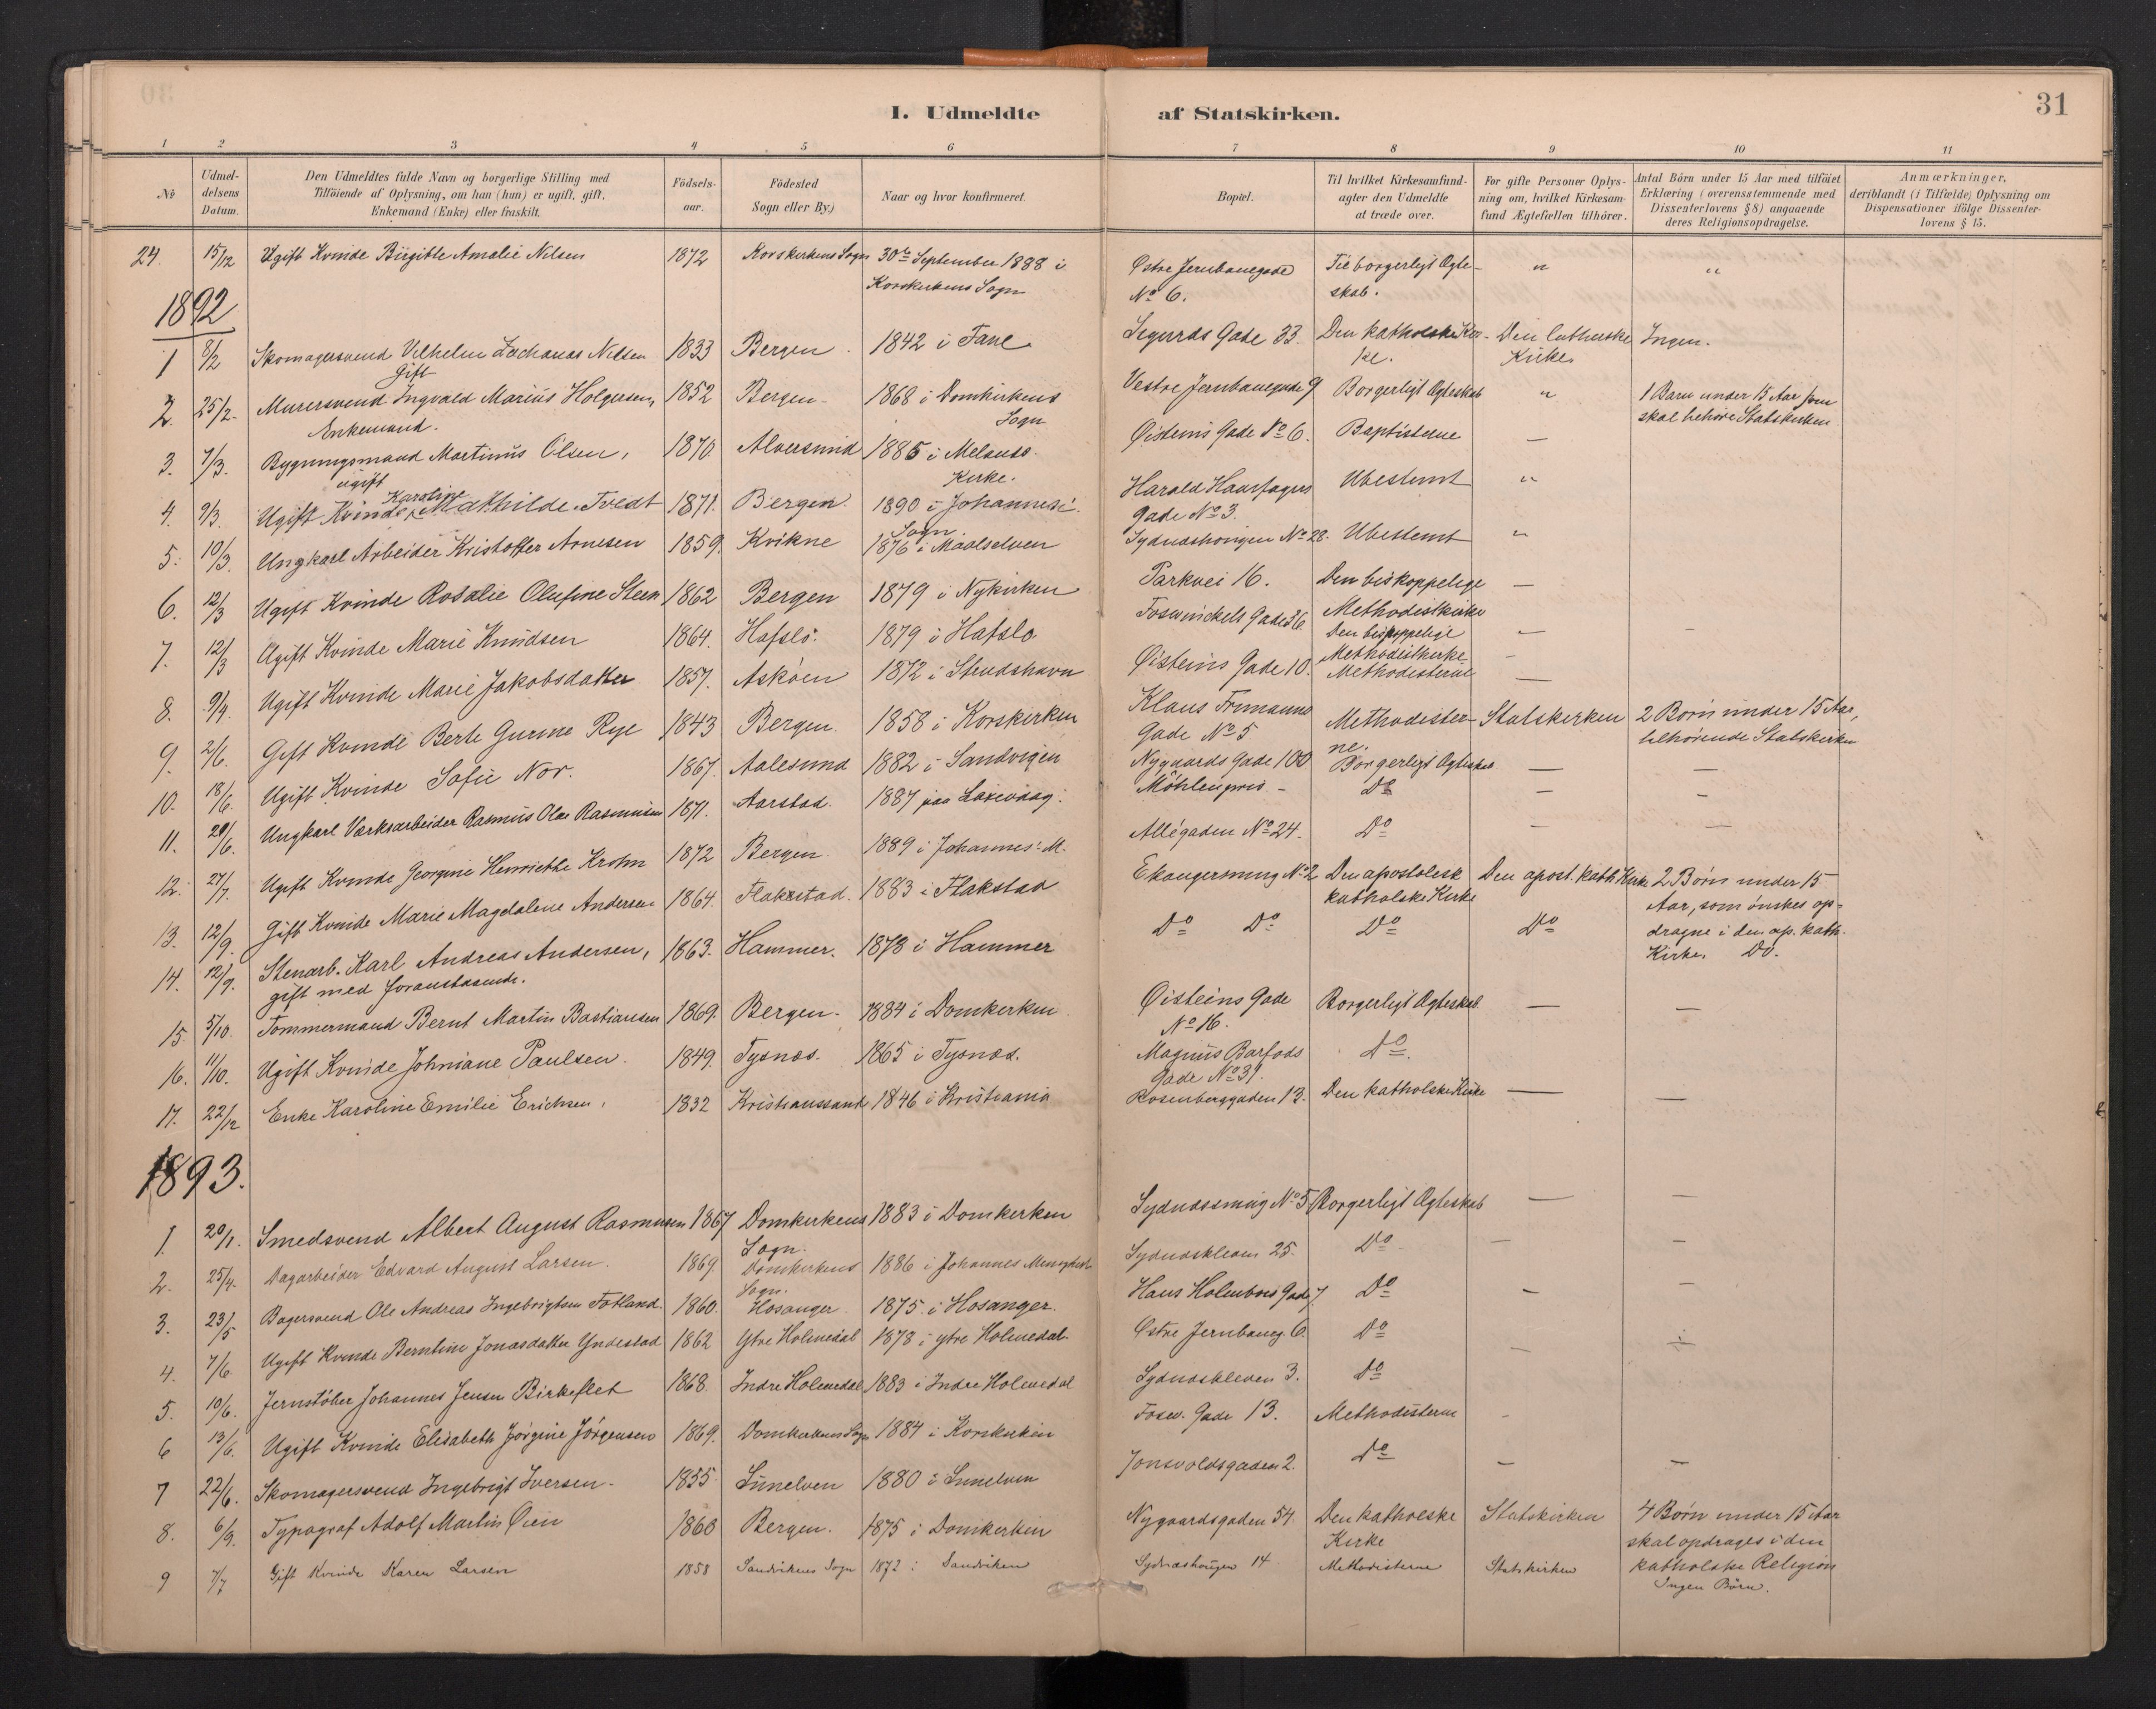 31
I. Udmeldte af Statskirken.
1 2 3 4 5 6 7 8 9 10 11
No
Udmeldelsens Datum.
Den Udmeldtes fulde Navn og borgerlige Stilling med
Tilföiende af Oplysning, om han (hun) er ugift, gift,
Enkemand (Enke) eller fraskilt.
Födselsaar.
Födested
Sogn eller By.)
Naar og hvor konfirmeret.
Bopæl.
Til hvilket Kirkesamfund-
agter den Udmeldte
at træde over.
For gifte Personer Oplys-
ning om, hvilket Kirkesam-
fund Ægtefællen tilhörer.
Antal Börn under 15 Aar med tilföiet
Erklæring (overensstemmende med
Dissenterlovens § 8) angaaende
deres Religionsopdragelse.
Anmærkninger,
deriblandt (i Tilfælde) Oplysning om
Dispensationer ifölge Dissenter-
lovens § 15.
24. 15/12 Ugift Kvinde Birgitte Amalie Nilsen 1872 Korskirkens Sogn 30te September 1888 i Korskirkens Sogn Østre Jernbanegade No 6. Til borgerligt Ægteskab. " "
1892
1 8/2 Skomagersvend Vilhelm Zacharias Nilsen Gift 1833 Bergen 1842 i Fane Sigurds Gade 33. Den katholske Kirke. Den lutherske Kirke Ingen.
2. 25/2. Murersvend Ingvald Marius Holgersen, Enkemand. 1852 Bergen 1868 i Domkirkens Sogn Vestre Jernbanegade 9 Borgerligt Ægteskab " 1 Barn under 15 Aar som skal tilhøre Statskirken
3. 7/3. Bygningsmand Martinus Olsen, ugift 1870 Alversund 1885 i Melands Kirke. Øisteins Gade No 6. Baptisterne —
4. 9/3. Ugift Kvinde Karoline Mathilde Tvedt 1871. Bergen 1890 i Johannes' Sogn Harald Haarfagers Gade No 3. Ubestemt "
5. 10/3. Ungkarl Arbeider Kristoffer Arnesen 1859. Kvikne 1876 i Maalselven Sydnæshougen No 28. Ubestemt "
6. 12/3 Ugift Kvinde Rosalie Olufine Steen 1862 Bergen 1879 i Nykirken Parkvei 16. Den biskoppelige Methodistkirke —
7. 12/3 Ugift Kvinde Marie Knudsen 1864. Hafslo. 1879 i Hafslo Fosswinckels Gade 36. Den biskoppelige Methodistkirke — —
8. 9/4. Ugift Kvinde Marie Jakobsdatter 1857. Askøen 1872 i Strudshavn Øisteins Gade 10. Methodisterne —
9. 2/6. Gift Kvinde Berte Gurine Rye 1843 Bergen 1858 i Korskirken Klaus Frimanns Gade No 5 Methodisterne. Statskirken 2 Børn under 15 Aar, tilhørende Statskirken
10. 18/6. Ugift Kvinde Sofie Nor. 1867. Aalesund 1882 i Sandvigen Nygaards Gade 100 Borgerligt Ægteskab — —
11. 29/6. Ungkarl Værksarbeider Rasmus Olai Rasmussen 1871. Aarstad. 1887 paa Laxevaag. Möhlenpris - Do — —
12. 27/7. Ugift Kvinde Georgine Henriette Krohn 1872 Bergen 1889 i Johannes' M. Allégaden No 24. Do — —
13. 12/9. Gift Kvinde Marie Magdalene Andersen 1864. Flakstad. 1883 i Flakstad No 2 Den apostolesk katholske Kirke Den apost. kath. Kirke 2 Børn under 15 Aar, som ønskes opdragne i den ap. kath. Kirke.
14. 12/9. Stenarb. Karl Andreas Andersen, gift med foranstaaende. 1863. Hammer. 1878 i Hammer Do Do Do Do Do.
15. 5/10. Tømmermand Bernt Martin Bastiansen 1869. Bergen 1884 i Domkirken Øisteins Gade No 16. Borgerligt Ægteskab — —
16. 11/10. Ugift Kvinde Johniane Paulsen. 1849. Tysnæs. 1865 i Tysnæs. Magnus Barfods Gade No 31. Do.
17. 22/12 Enke Karoline Emilie Erichsen. 1832 Kristianssand 1846 i Kristiania Rosenberggaden 13. Den katholske Kirke — —
1893.
1. 20/1. Smedsvend Albert August Rasmussen 1867 Domkirkens Sogn. 1883 i Domkirken No 5 Borgerligt Ægteskab — —
2. 25/4. Dagarbeider Edvard August Larsen. 1869 Domkirkens Sogn. 1886 i Johannes Menighed Sydnæskleven 25. Do — —
3. 23/5 Bagersvend Ole Andreas Ingebrigtsen Fotland. 1860. Hosanger 1875 i Hosanger. Hans Holmboes Gade 7. Do — —
4. 7/6. Ugift Kvinde Berntine Jonasdatter Yndestad 1862 Ytre Holmedal 1878 i ytre Holmedal. Østre Jernbaneg. 6. Do — —
5. 10/6. Jernstøber Johannes Jensen Birkeflet 1868. Indre Holmedal 1883 i Indre Holmedal Sydnæskleven 3. Do
6 13/6. Ugift Kvinde Elisabeth Jørgine Jørgensen 1869. Domkirkens Sogn 1884 i Korskirken Fosw. Gade 13. Methodisterne -
7 22/6. Skomagersvend Ingebrigt Iversen. 1855 Sunelven 1880 i Sunelven Jonsvoldsgaden 2. Do — —
8. 6/9. Typograf Adolf Martin Øien 1860 Bergen. 1875 i Domkirken Nygaardsgaden 54. Den katholske Kirke Statskirken 4 Børn under 15 Aar skal opdrages i den katholske Religion
9 7/7 Gift Kvinde Karen Larsen 1858 Sandvikens Sogn 1872 i Sandviken Sydnæshougen 14 Methodisterne Statskirken Ingen Børn.